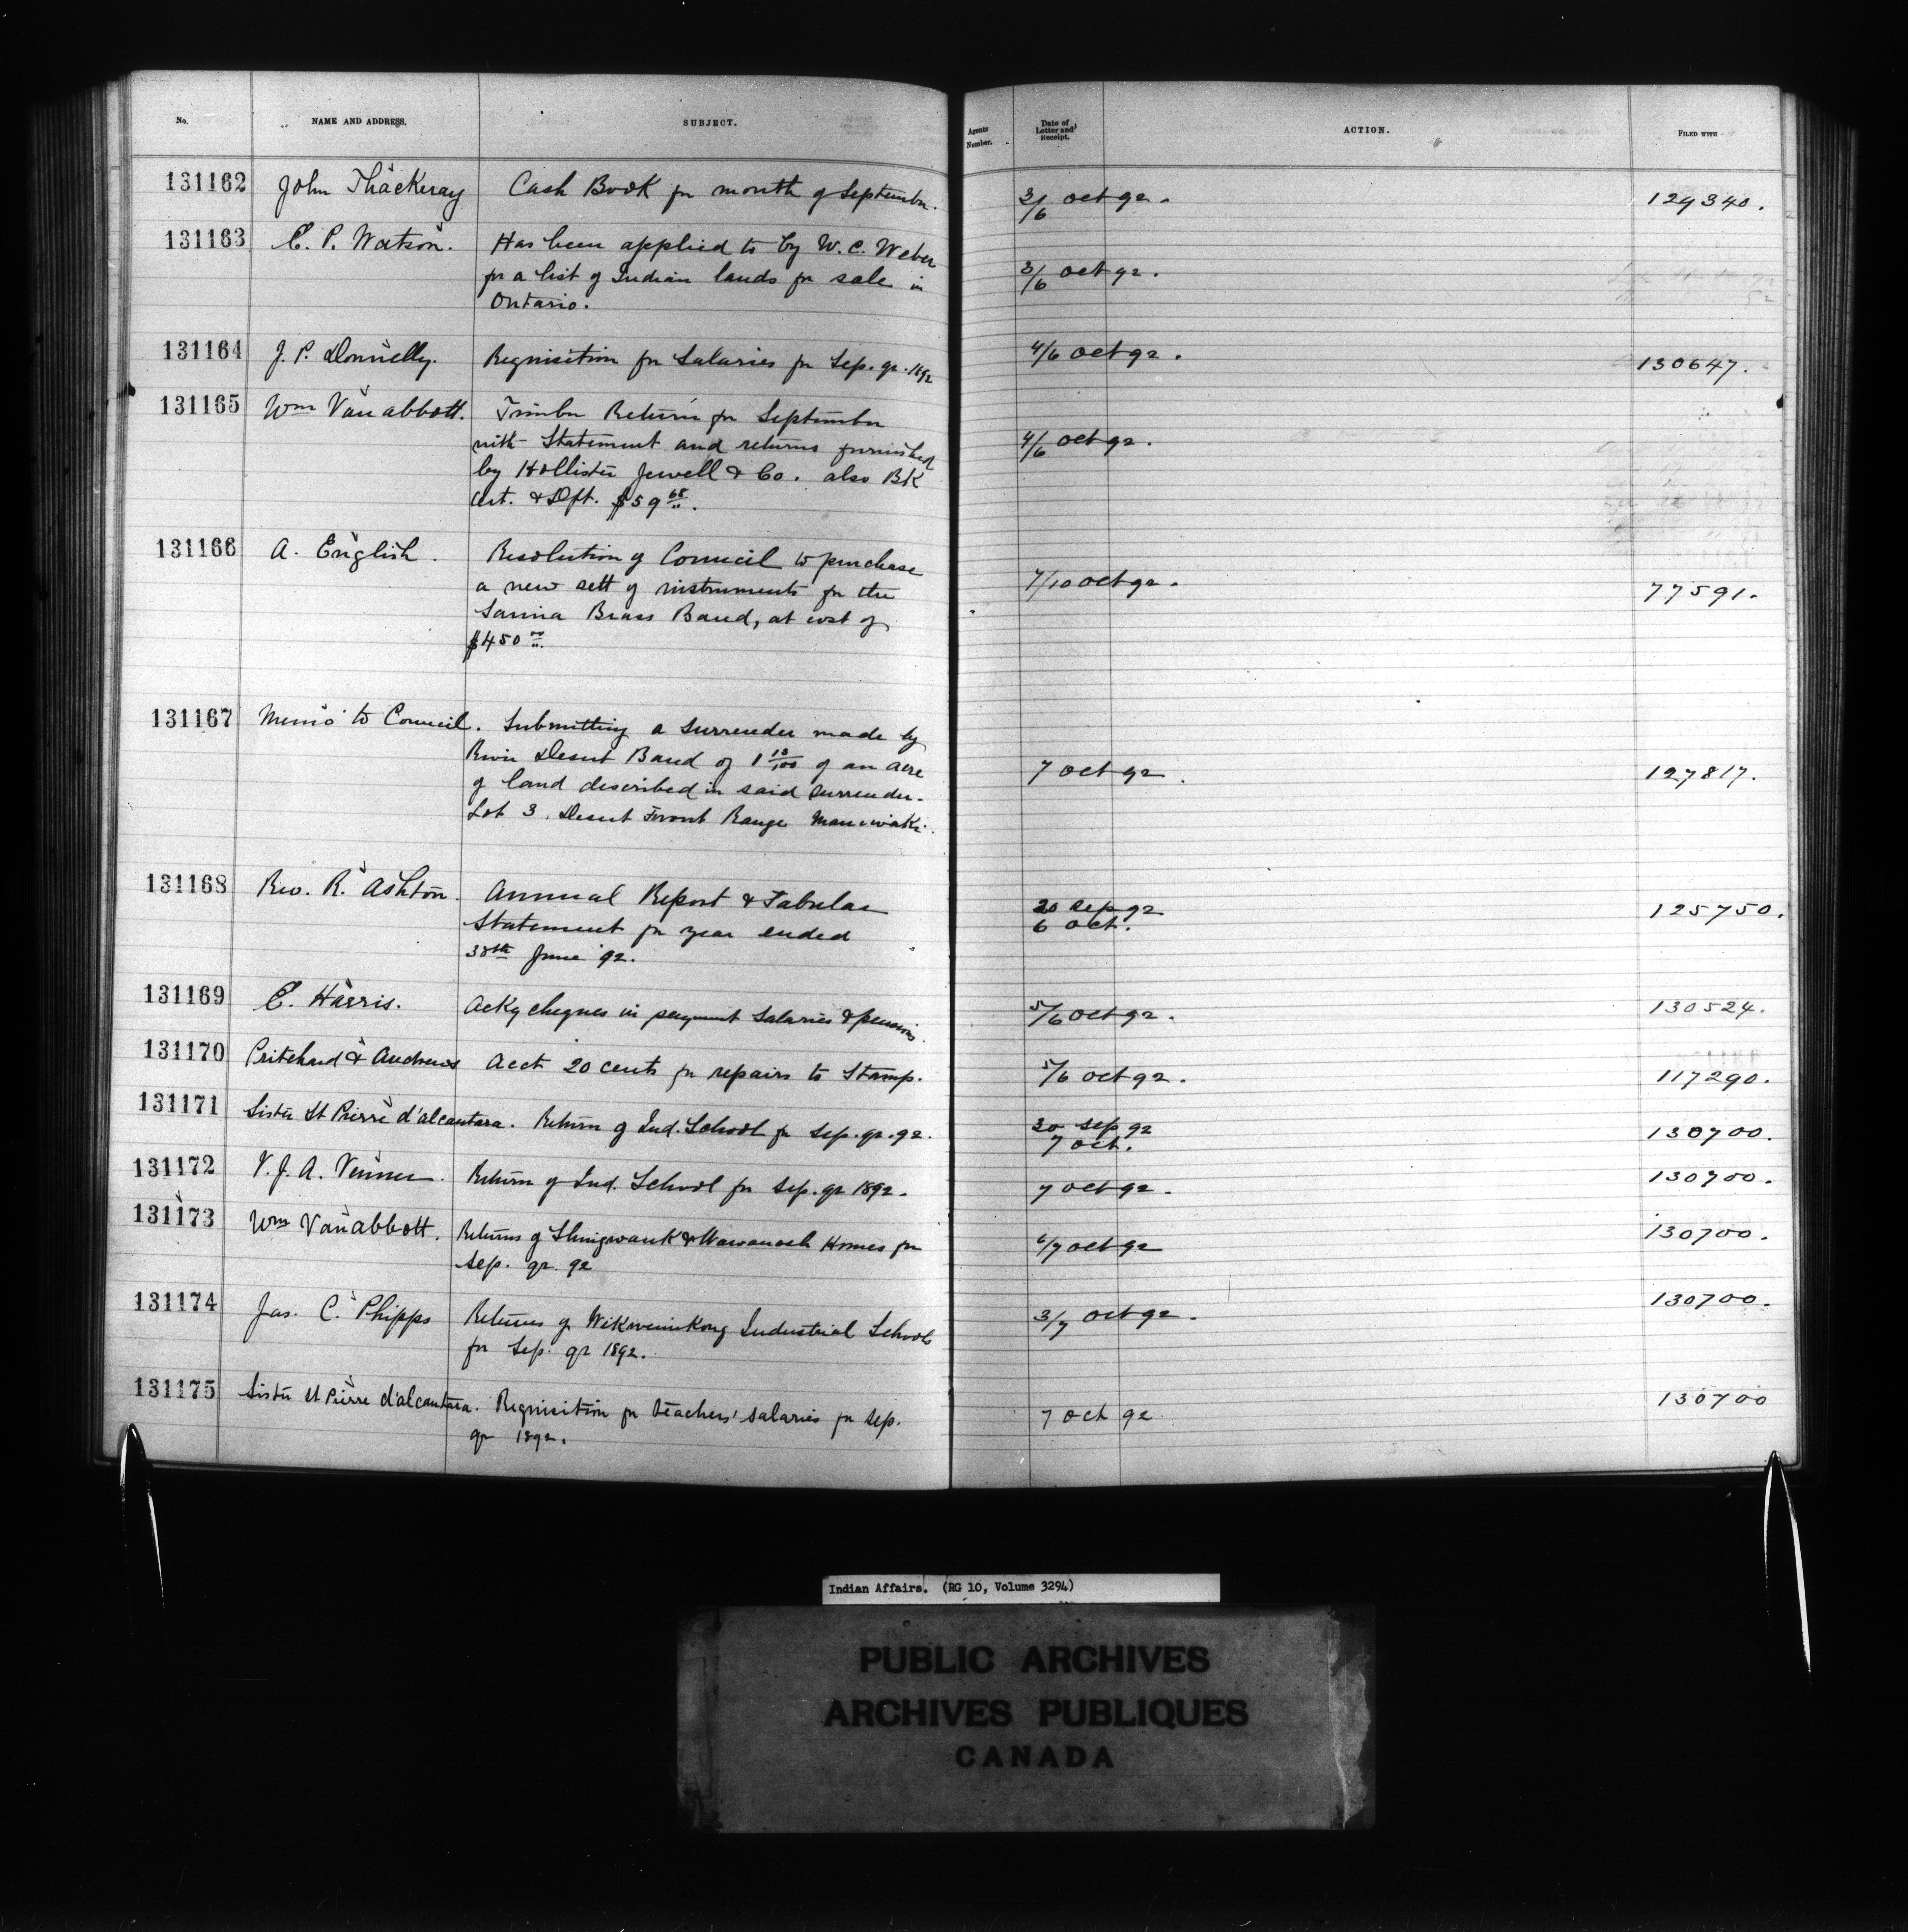 No. NAME AND ADDRESS. SUBJECT. Agents Number. Date of Letter and Receipt. ACTION. FILED WITH
131162 John Thackeray Cash Book for month of September. 3/6 Oct 92. 129340.
131163 C. P. Watson. Has been applied to by W. C. Weber
for a list of Indian lands for sale in 3/6 Oct 92.
Ontario.
131164 J. P. Donnelly. Requisition for Salaries for Sep. qr. 1892 4/6 Oct 92. 130647.
131165 Wm Van abbott. Timber Return for September
with Statement and returns furnished 4/6 Oct 92.
by Hollister Jewell & Co. also BK
Cert. & Dft. $59 68.
131166 A. English. Resolution of Council to purchase
a new sett of instruments for the 7/10 Oct 92. 77591.
Sarnia Brass Band, at cost of
$450 00.
131167 Memo to Council. Submitting a Surrender made by
River Desert Band of 1 18/100 of an acre 7 Oct 92. 127817.
of land described in said surrender.
Lot 3. Desert Front Range Maniwaki.
131168 Rev. R. Ashton. Annual Report & Tabular 20 Sep 92 125750.
Statement for year ended 6 Oct.
30th June '92.
131169 C. Harris. Ackg cheques in payment Salaries & pensions 5/6 Oct 92. 130524.
131170 Pritchard & Andrews Acct 20 cents for repairs to Stamp. 5/6 Oct 92. 117290.
131171 Sister St Pierre d'alcantara. Return of Ind. School for Sep. qr. 92. 30 Sep 92 130700.
7 Oct.
131172 V. J. A. Venner. Return of Ind. School for Sep. qr 1892. 7 Oct 92. 130700.
131173 Wm Van abbott. Returns of Shingwauk & Wawanosh Homes for 6/7 Oct 92 130700.
Sep. qr. 92
131174 Jas. C. Phipps Returns of Wikwemikong Industrial Schools 3/7 Oct 92. 130700.
for Sep. qr 1892.
131175 Sister St Pierre d'alcantara. Requisition for teachers' salaries for Sep. 7 Oct 92 130700
qr 1892.
Indian Affairs. (RG 10, Volume 3294)
PUBLIC ARCHIVES
ARCHIVES PUBLIQUES
CANADA